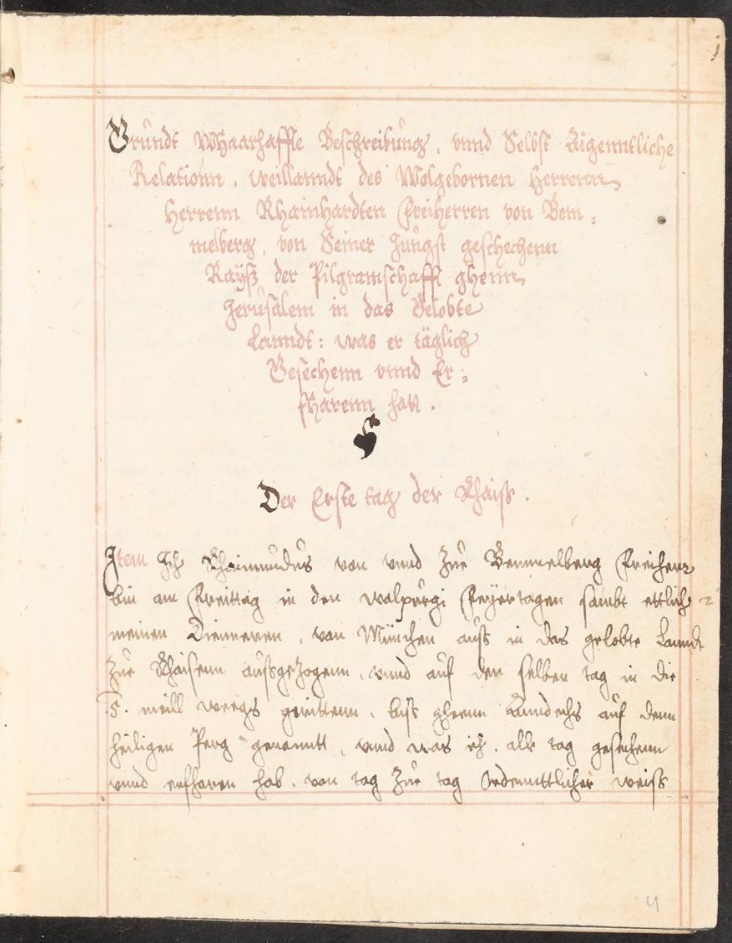 Gründt Whaarhaffte Beschreibung, vnnd Selbst Aigenntliche
Relationn, weillanndt des Wolgebornen Herrenn
Herrenn Rhainhardten Freiherren von Bem=
melberg, von Seiner Jüngst geschechenn
Raÿsz der Pilgramschafft ghenn
Jerüsalem in das Gelobte
Lanndt: was er täglich
Gesechenn vnnd Er=
fharenn hatt.
Der Erste tag der Rhaiss.
Item Ich Rhaimundüs von vnnd Züe Bemmelberg Freiherr
bin am Freittag in den walpürgi Feÿertagen sambt ettlich
meinen Diennern, von München auss in das gelobte Lanndt
Züe Rhaisenn aussgezogenn, vnnd auf den selben tag in die
.5. meill weegs gerittenn, biss ghenn Anndechs auf denn
heiligen Perg genanntt, vnnd was ich, alle tag gesechenn
vnnd erfharen hab, von tag Züe tag Ordenntlicher weiss
4